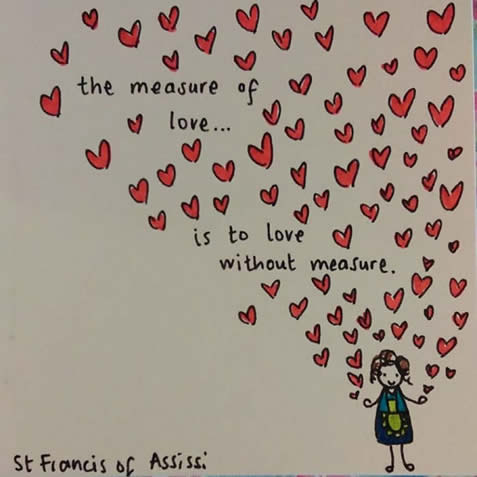 the measure of
love...
is to love
without measure.
St Francis of Assissi